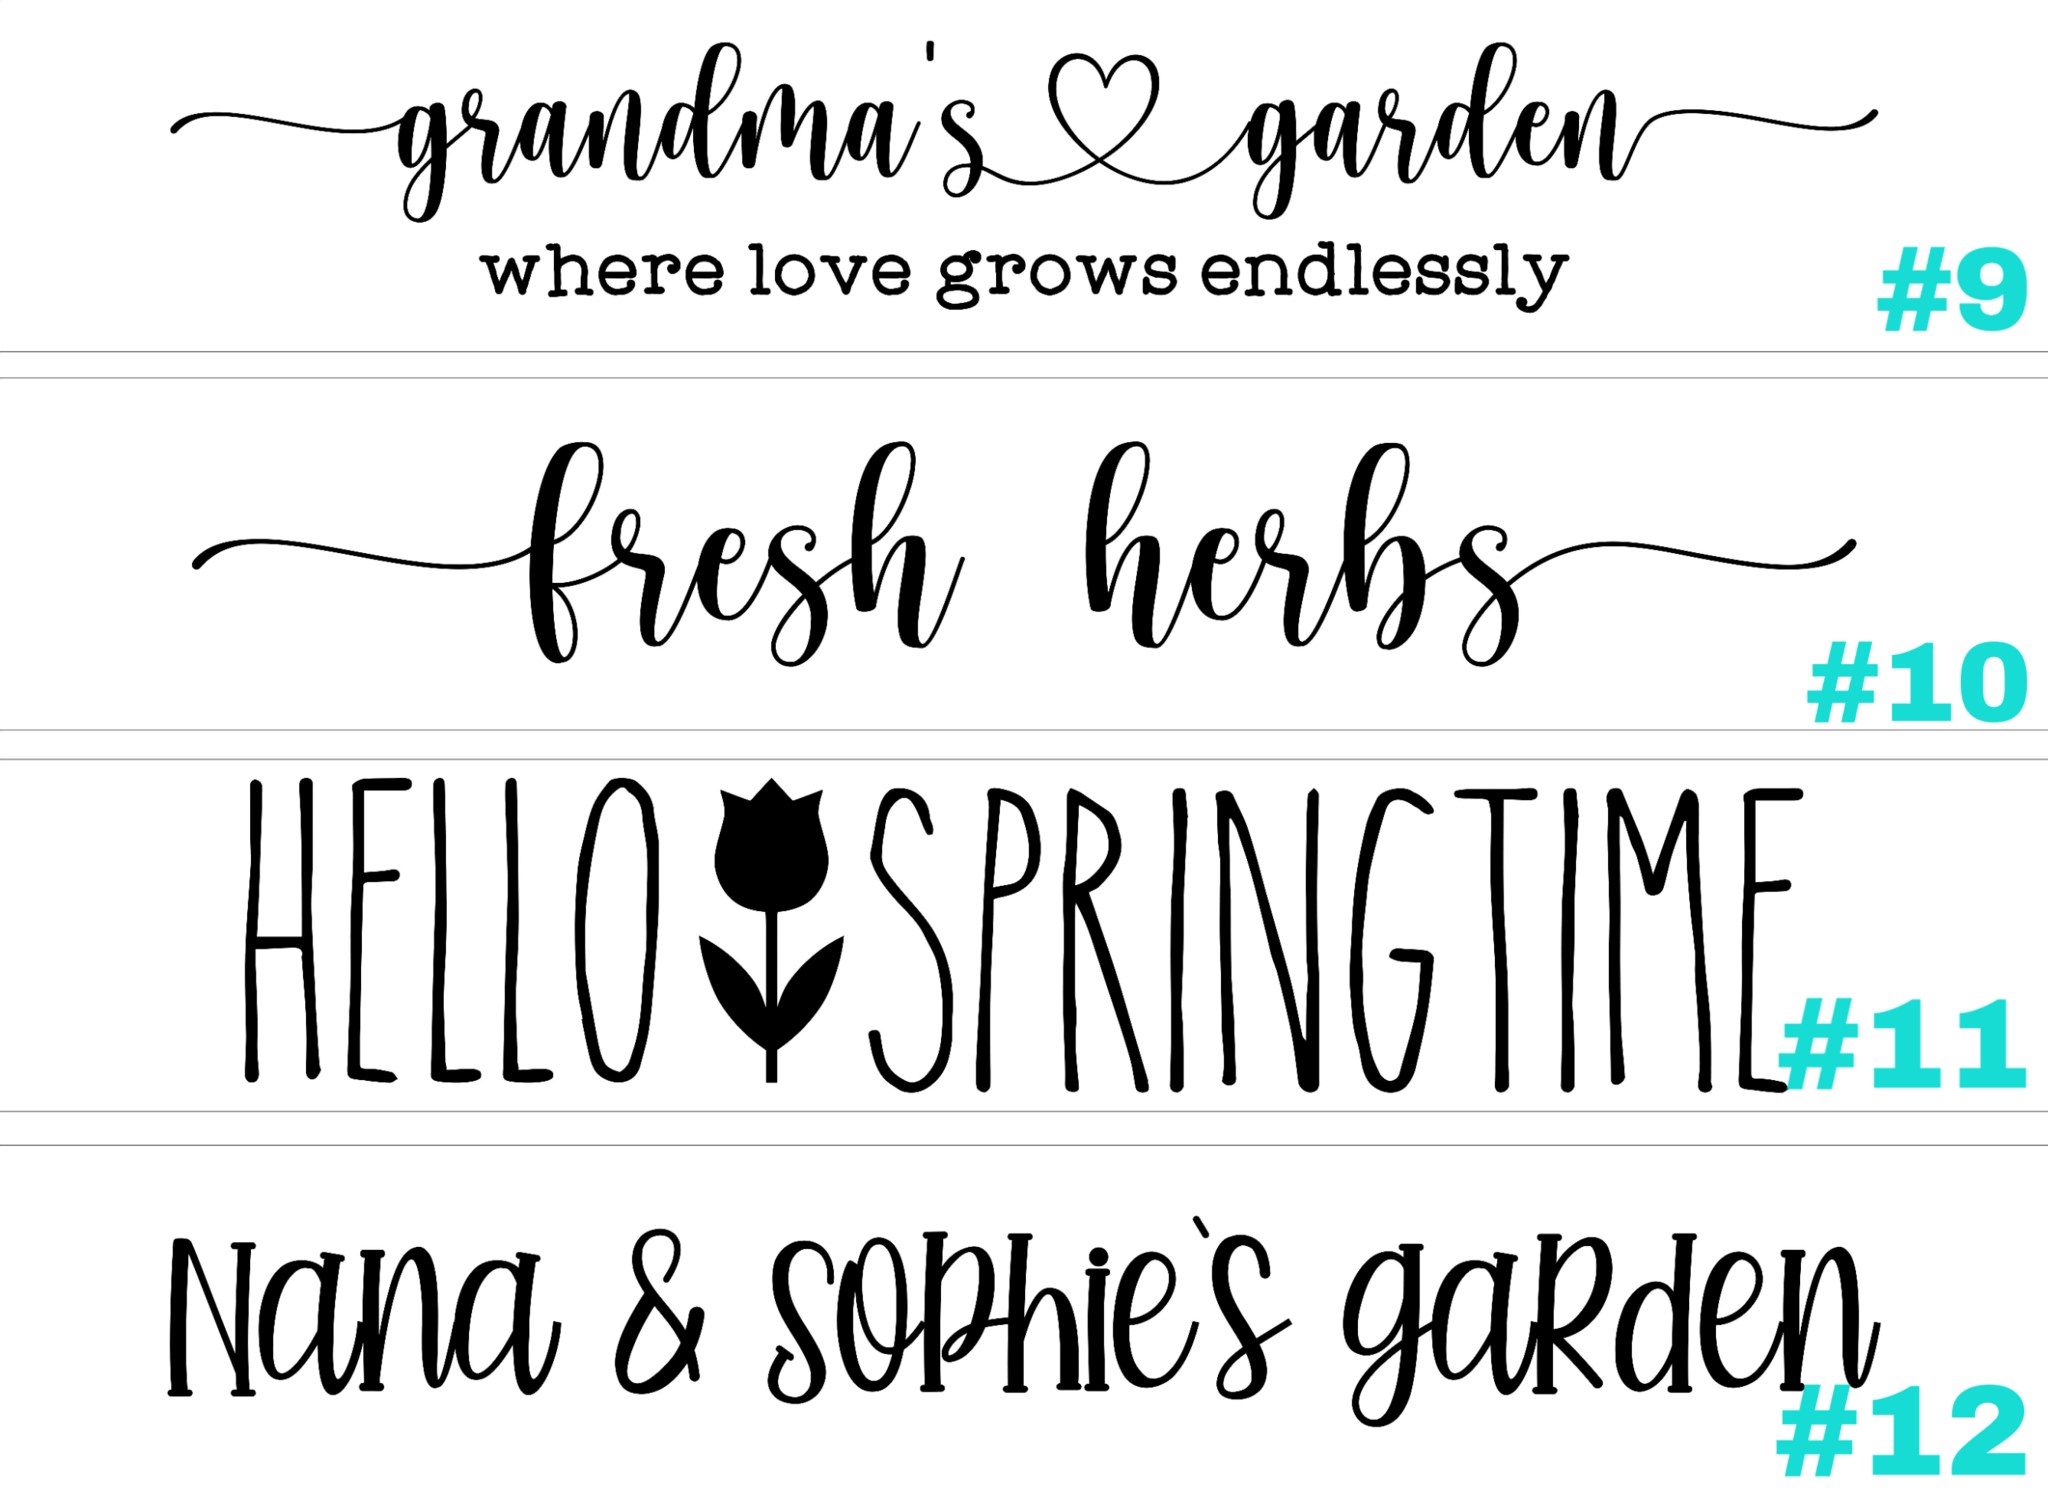 grandma's garden
where love grows endlessly
#9
fresh herbs
#10
HELLO SPRINGTIME
#11
Nana & Sophie's garden
#12